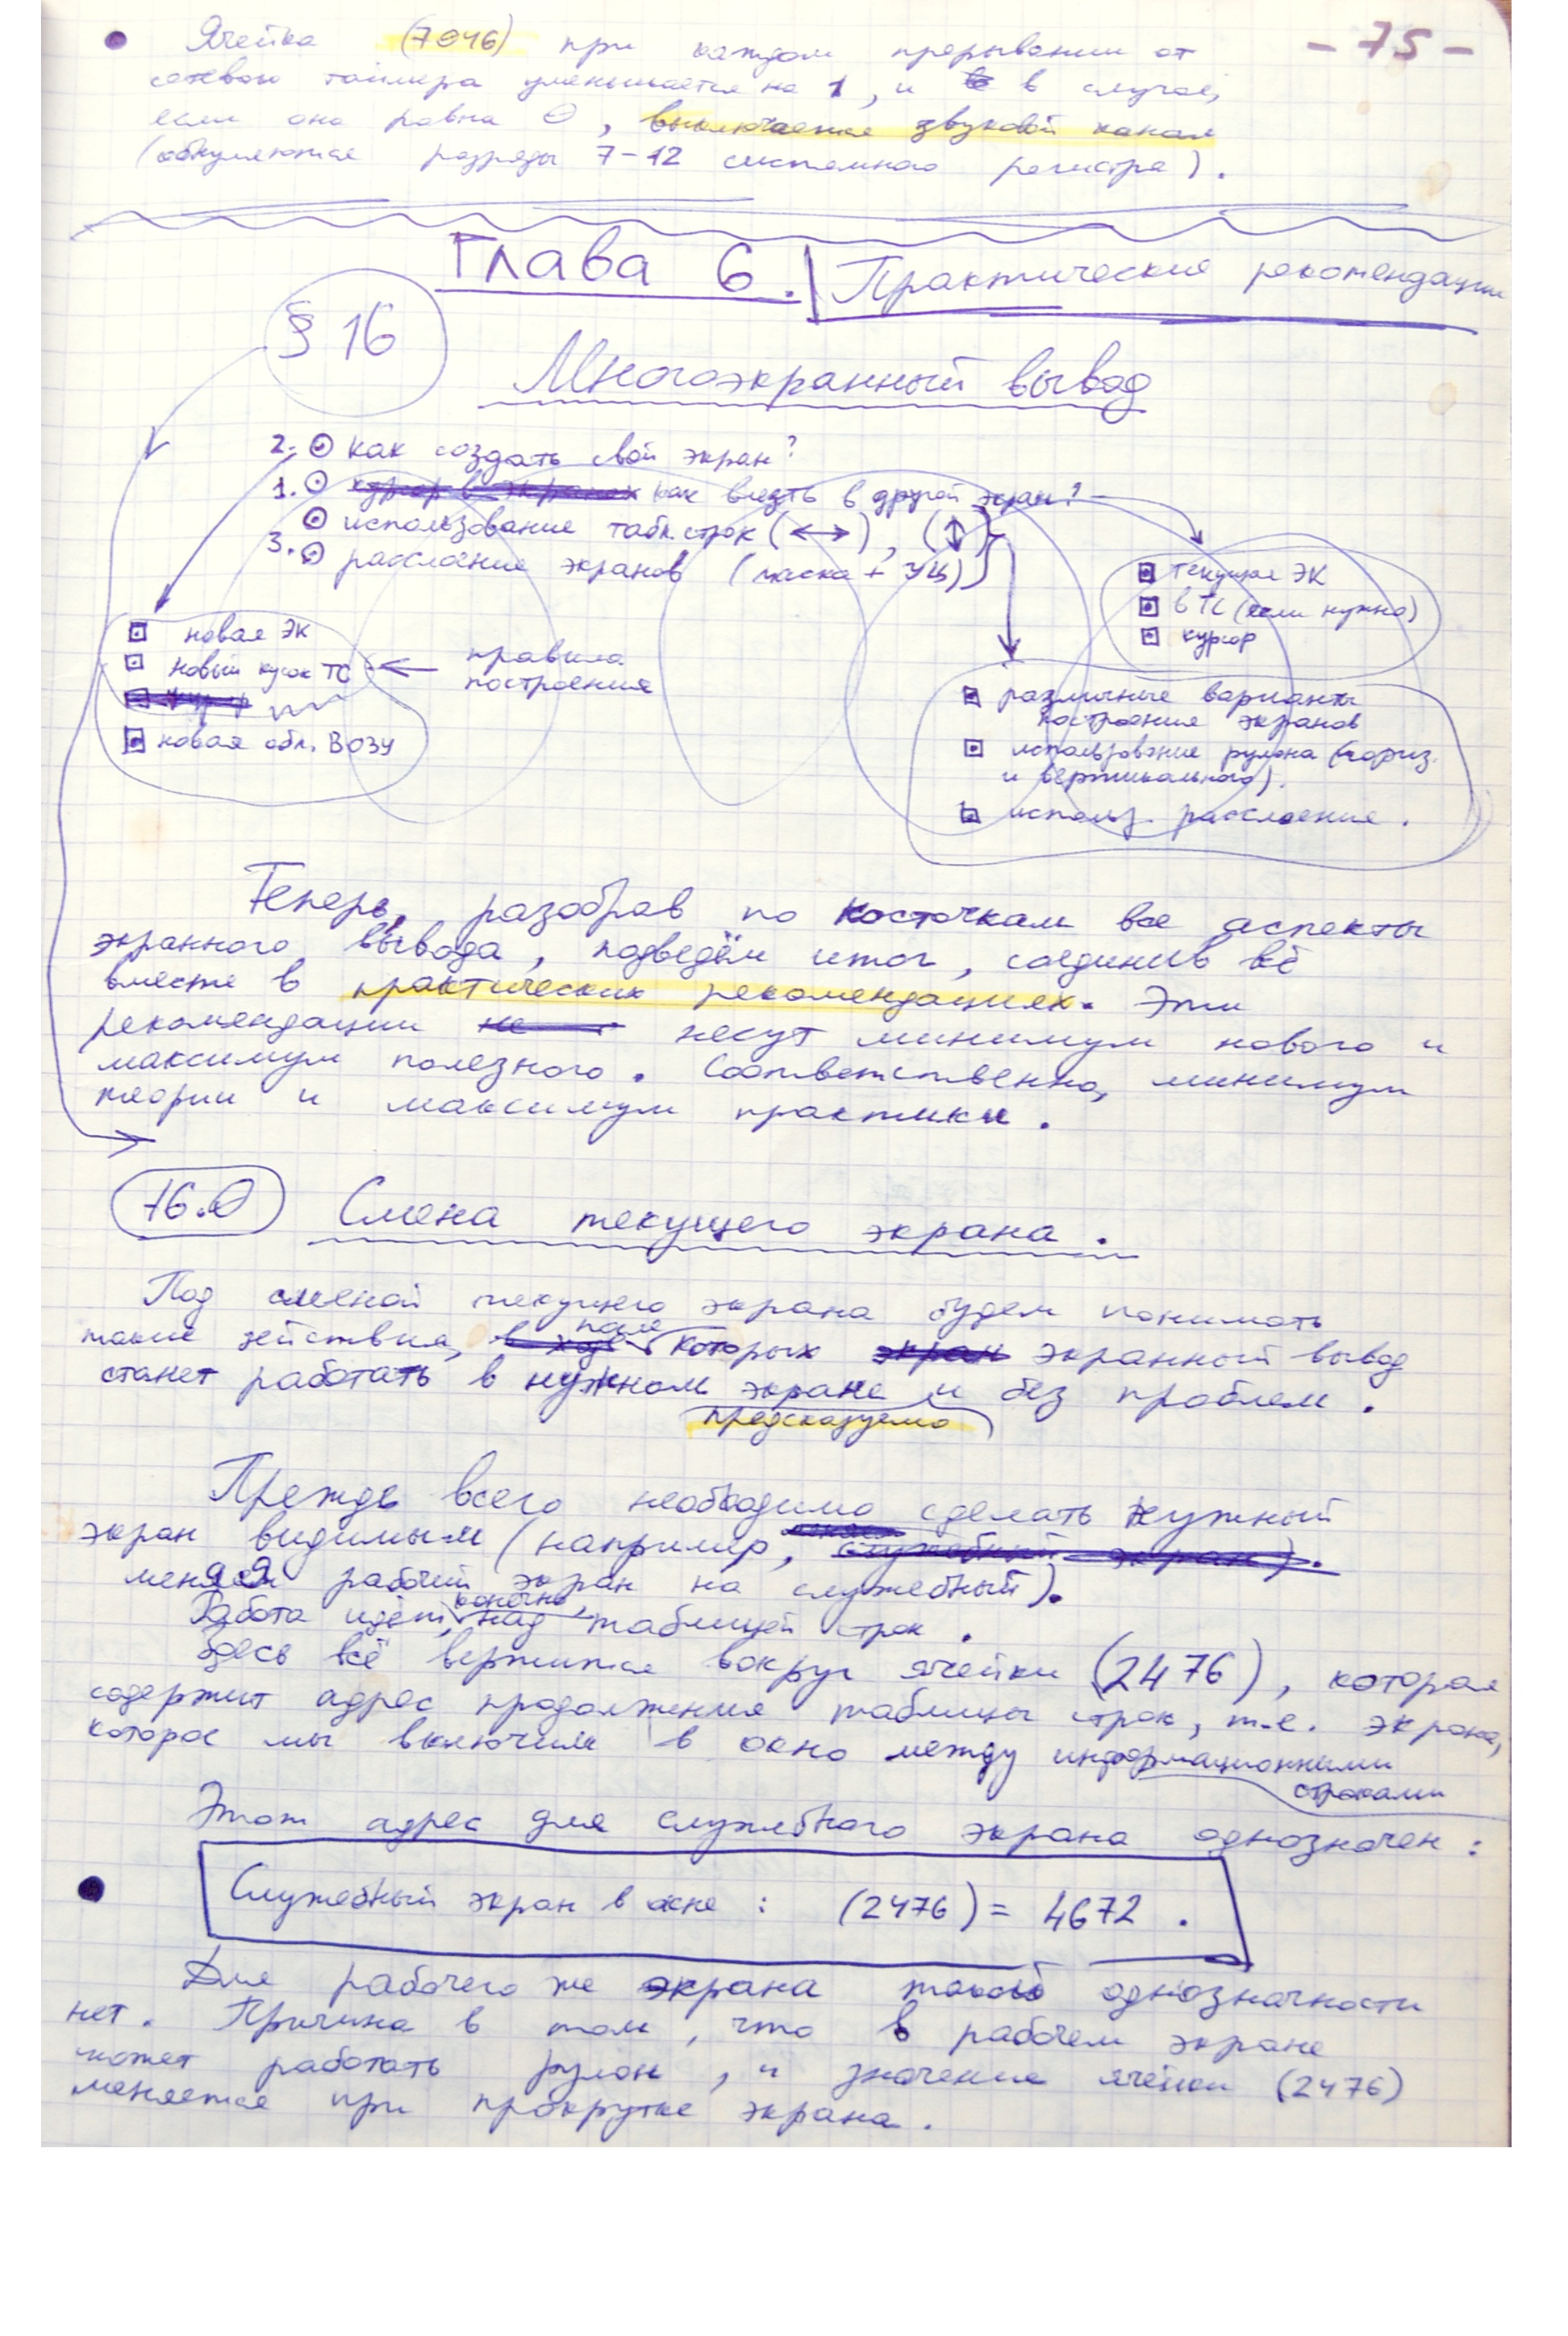 - 75 -
Ячейка (7046) при каждом прерывании от
сетевого таймера уменьшается на 1, и в случае,
если она равна 0, выключается звуковой канал
(обнуляются разряды 7-12 системного регистра).
Глава 6. Практические рекомендации
§ 16
Многоэкранный вывод
2. как создать свой экран?
1. как влезть в другой экран?
использование табл. строк (↔), (↕)
3. расслоение экранов (маска + УЦ)
новая ЭК
новый кусок ТС ← правила построения
новая обл. ВОЗУ
текущая ЭК
в ТС (если нужно)
курсор
различные варианты
построения экранов
использование рулона (гориз.
и вертикального).
использ. расслоение.
Теперь, разобрав по косточкам все аспекты
экранного вывода, подведём итог, соединив всё
вместе в практических рекомендациях. Эти
рекомендации несут минимум нового и
максимум полезного. Соответственно, минимум
теории и максимум практики.
16.0 Смена текущего экрана.
Под сменой текущего экрана будем понимать
такие действия, после которых экранный вывод
станет работать в нужном экране предсказуемо и без проблем.
Прежде всего необходимо сделать нужный
экран видимым (например,
меняя рабочий экран на служебный).
Работа идёт, конечно, над таблицей строк.
Здесь всё вертится вокруг ячейки (2476), которая
содержит адрес продолжения таблицы строк, т.е. экрана,
которое мы включим в окно между информационными
строками
Этот адрес для служебного экрана однозначен:
Служебный экран в окне: (2476) = 4672.
Для рабочего же экрана такой однозначности
нет. Причина в том, что в рабочем экране
может работать рулон, и значение ячейки (2476)
меняется при прокрутке экрана.